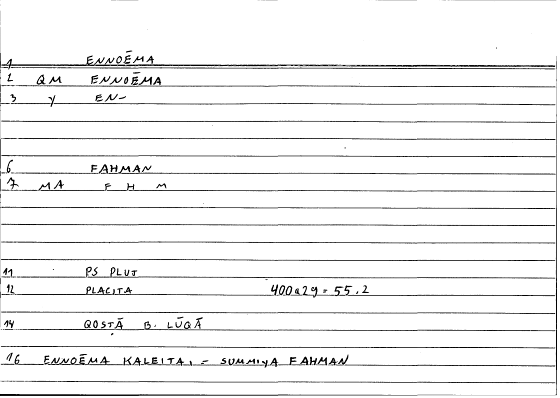 1 ENNOĒMA
2 QM ENNOĒMA
3 Y EN-
6 FAHMAN
7 MA F H M
11 PS PLUT
12 PLACITA 400a29 = 55.2
14 QOSTĀ B. LŪQĀ
16 ENNOĒMA KALEITAI = SUMMIYA FAHMAN